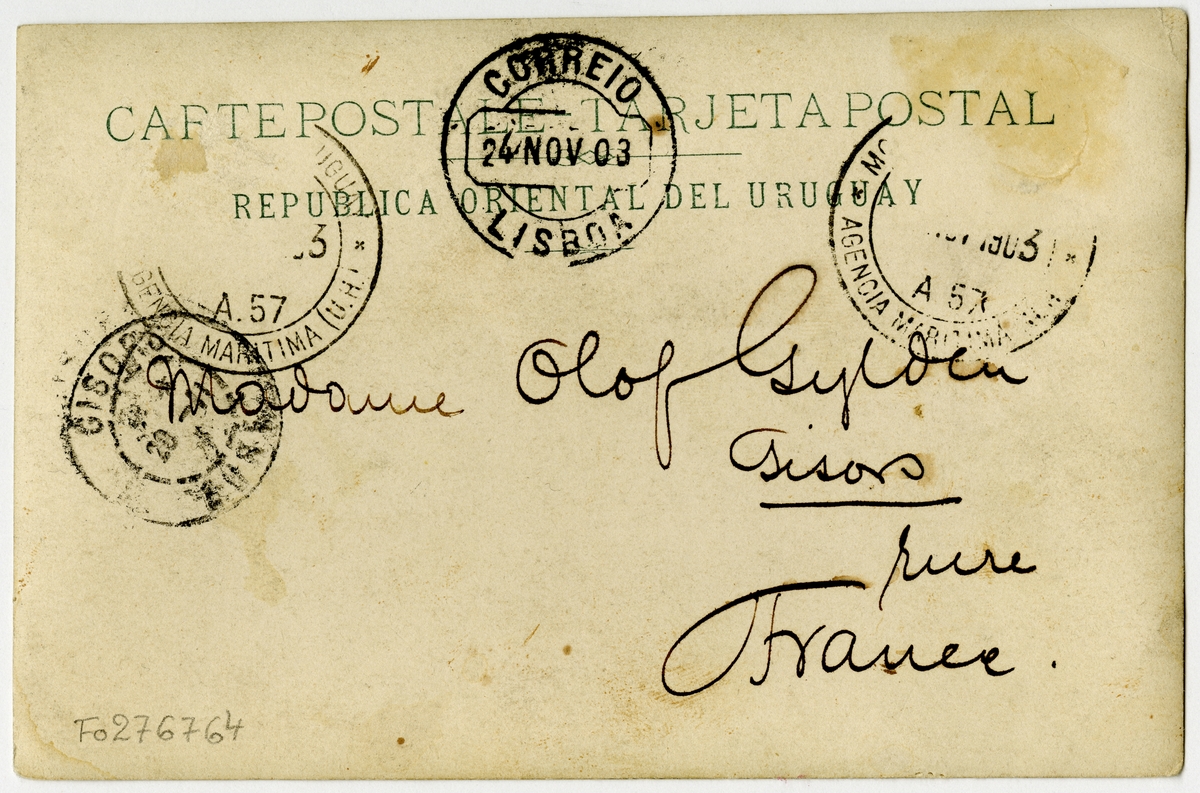 CARTE POSTALE TARJETA POSTAL
REPUBLICA ORIENTAL DEL URUGUAY
CORREIO
24 NOV 03
LISBOA
A.57
AGENCIA MARITIMA (U.H.)
1903
A 57
AGENCIA MARITIMA
GISORS
EURE
Madame Olof Gylden
Gisors
Eure
France.
Fo276764